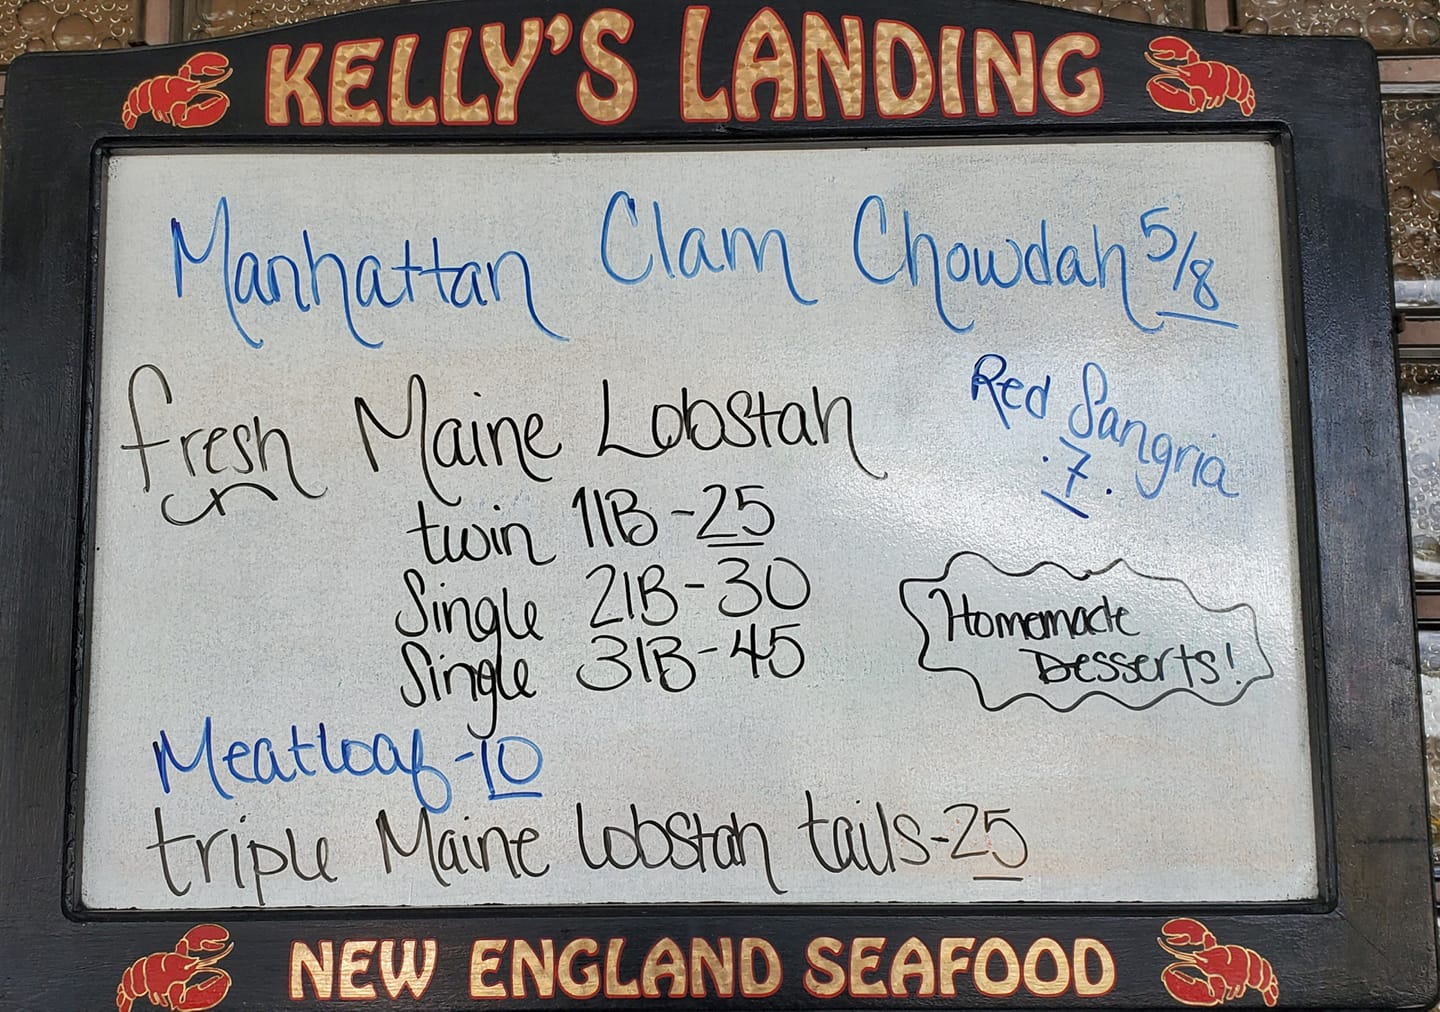 KELLY'S LANDING
Manhattan Clam Chowdah 5/8
fresh Maine Lobstah
Red Sangria
.7.
twin 1lB-25
Single 2lB-30
Single 3lB-45
Homemade
Desserts!
Meatloaf-10
triple Maine lobstah tails-25
NEW ENGLAND SEAFOOD